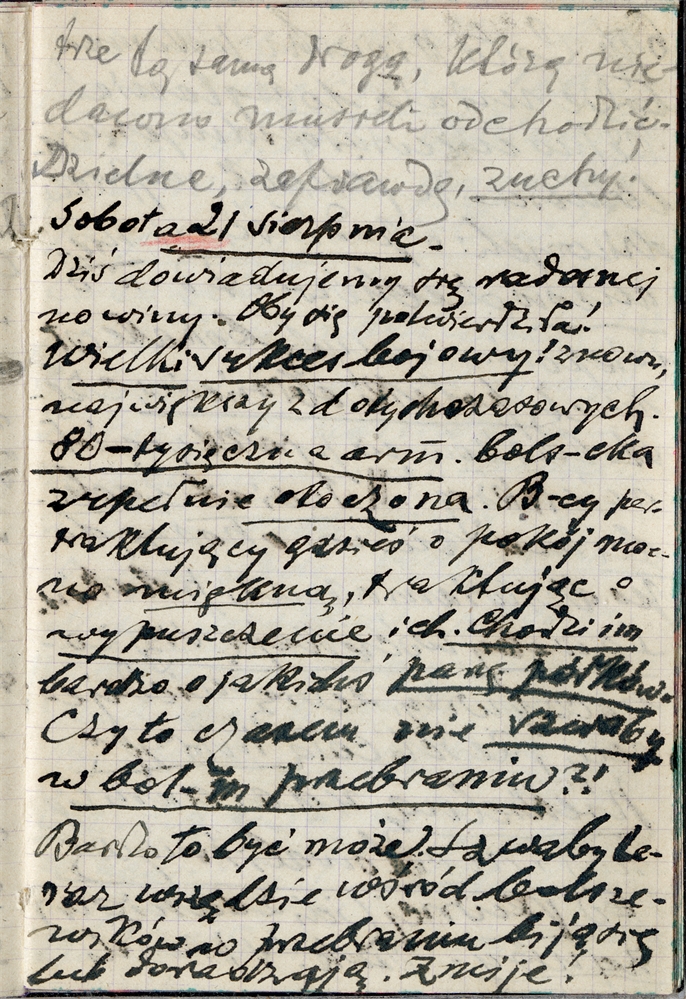 trze tą samą drogą, którą nie-
dawno musieli odchodzić.
Dzielne, zaprawdę, zuchy!
Sobota 21 sierpnia.
Dziś dowiadujemy się radosnej
nowiny. Oby się potwierdziła!
Wielki sukces bojowy! znowu,
największy z dotychczasowych.
80-tysięczna arm. bols-cka
zupełnie otoczona. B-cy per-
traktujący gdzieś o pokój moc-
no miękną, traktując o
wypuszczenie ich. Chodzi im
bardzo o jakichś parę pułków.
Czy to czasem nie szwaby
w bol-m przebraniu?!
Bardzo to być może. Szwaby te-
raz wszędzie wśród bolsze-
wików w przebraniu biją się
lub doradzają. Żmije!